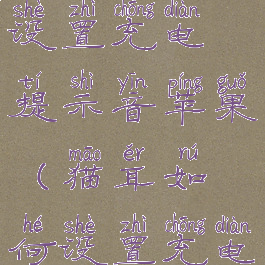 shè zhì chōng diàn
设置充电
tí shì yīn píng guǒ
提示音苹果
māo ěr rú
（猫耳如
hé shè zhì chōng diàn
何设置充电